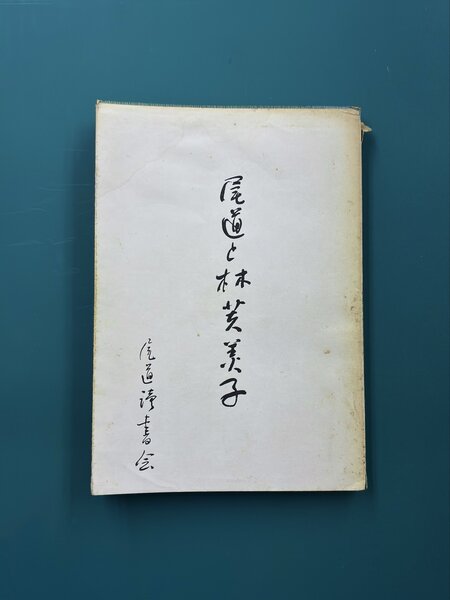 尾道と林芙美子
尾道読書会